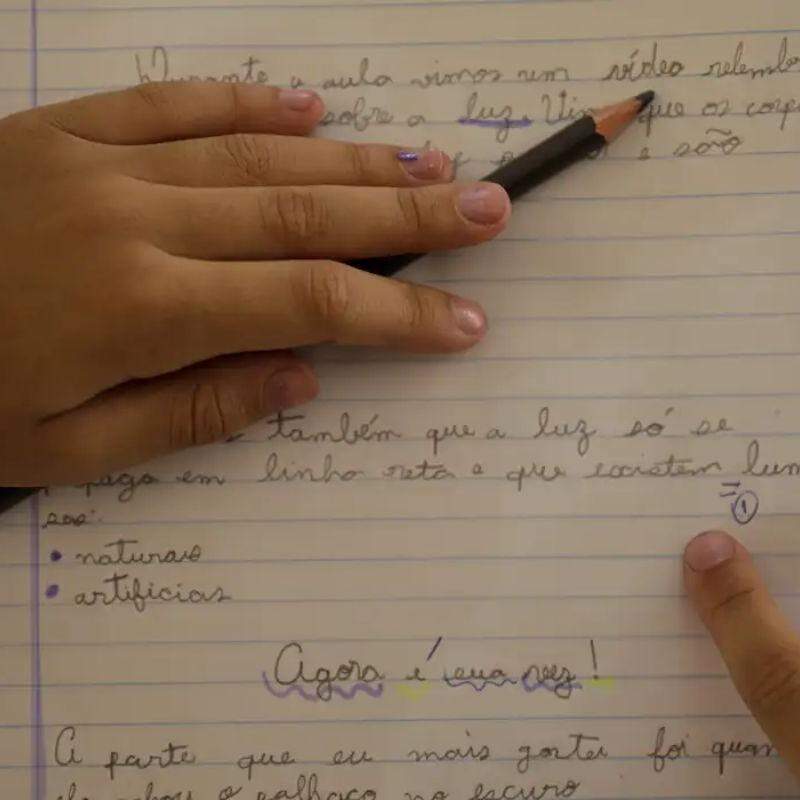 Durante a aula vimos um vídeo relemb
sobre a luz. Vi que os corp
e são
também que a luz só se
em linha reta e que existem lum
sos:
• naturais
• artificias
Agora é sua vez!
A parte que eu mais gostei foi quan
o palhaço no escuro